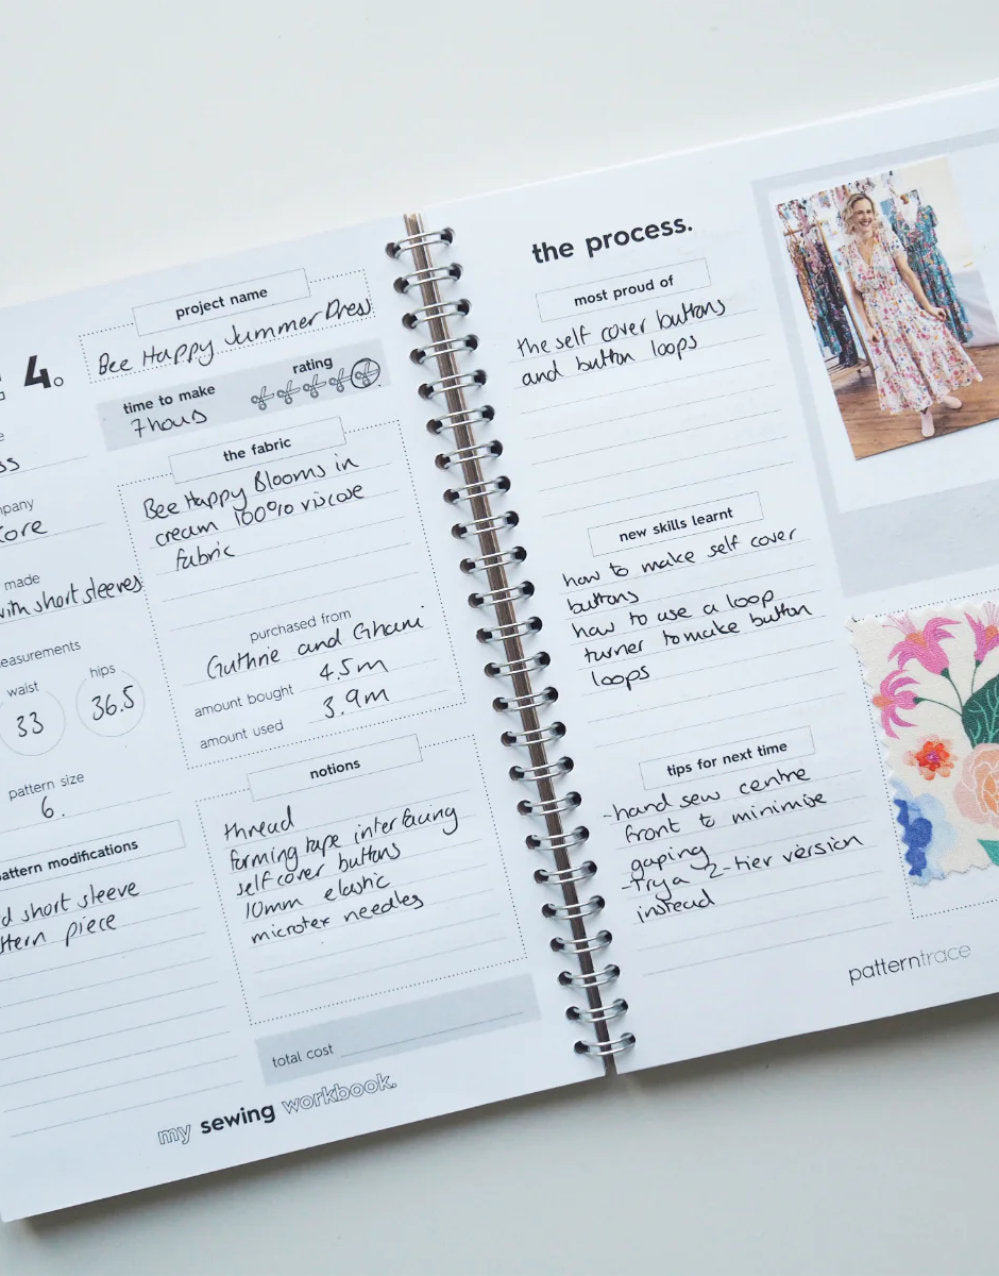 4.
project name
Bee Happy Summer Dress
time to make
7 hours
rating
ss
mpany
core
made
with short sleeves
easurements
waist
33
hips
36.5
pattern size
6.
pattern modifications
d short sleeve
ttern piece
the fabric
Bee Happy Blooms in
cream 100% viscose
fabric
purchased from
Guthrie and Ghani
amount bought 4.5m
amount used 3.9m
notions
thread
forming tape interfacing
self cover buttons
10mm elastic
microtex needles
total cost
my sewing workbook.
the process.
most proud of
the self cover buttons
and button loops
new skills learnt
how to make self cover
buttons
how to use a loop
turner to make button
loops
tips for next time
-hand sew centre
front to minimise
gaping
-Try a 2-tier version
instead
patterntrace